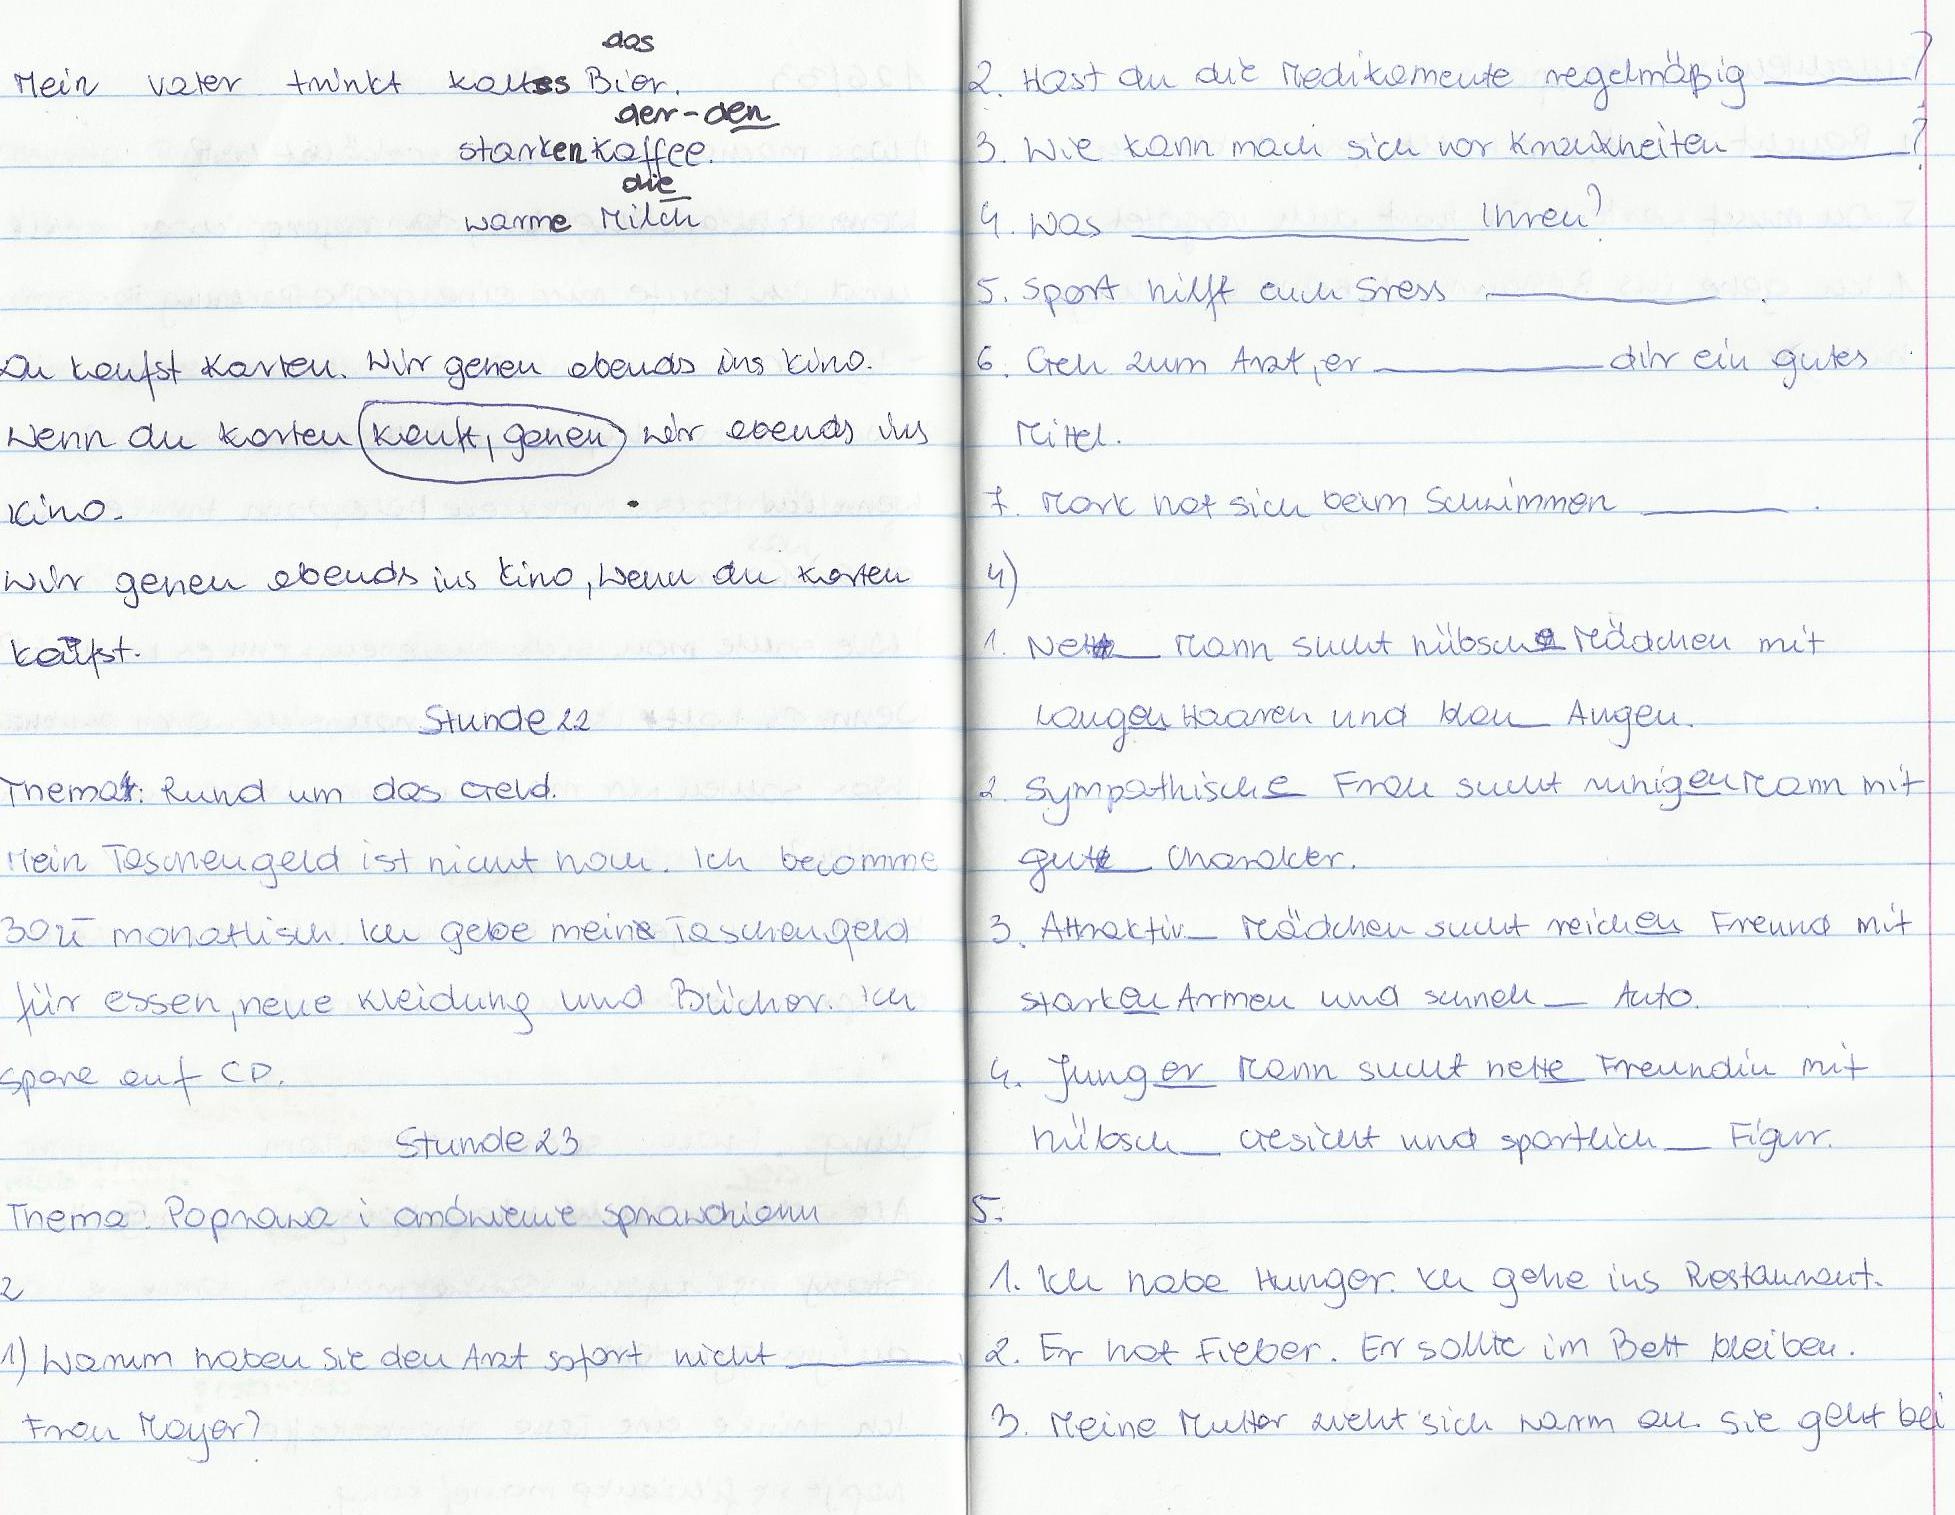 das
Mein vater trinkt kaltes Bier.
der-den
starken Kaffee.
die
warme Milch
Du kaufst Karten. Wir gehen abends ins Kino.
Wenn du Karten kaufst, gehen wir abends ins
Kino.
Wir gehen abends ins Kino, wenn du Karten
kaufst.
Stunde 22
Thema: Rund um das Geld.
Mein Taschengeld ist nicht hoch. Ich becomme
30zł monatlisch. Ich gebe meine Taschengeld
für essen, neue Kleidung und Bücher. Ich
spare auf CD.
Stunde 23
Thema: Poprawa i omówienie sprawdzianu
2
1) Warum haben Sie den Arzt sofort nicht ______
Frau Mayer?
2. Hast du die Medikamente regelmäßig ______?
3. Wie kann mach sich vor Krankheiten ______?
4. Was ______ Ihnen?
5. Sport hilft euch Sress ______.
6. Geh zum Arzt, er ______ dir ein gutes
Mittel.
7. Mark hat sich beim Schwimmen ______.
4)
1. Nett__ Mann sucht hübsche Mädchen mit
langen Haaren und blau__ Augen.
2. Sympathische Frau sucht ruhigen Mann mit
gut__ Charakter.
3. Attraktiv__ Mädchen sucht reichen Freund mit
starken Armen und schnell__ Auto.
4. Junger Mann sucht nette Freundin mit
hübsch__ Gesicht und sportlich__ Figur.
5.
1. Ich habe Hunger. Ich gehe ins Restaurant.
2. Er hat Fieber. Er sollte im Bett bleiben.
3. Meine Mutter zieht sich warm an. Sie geht bei